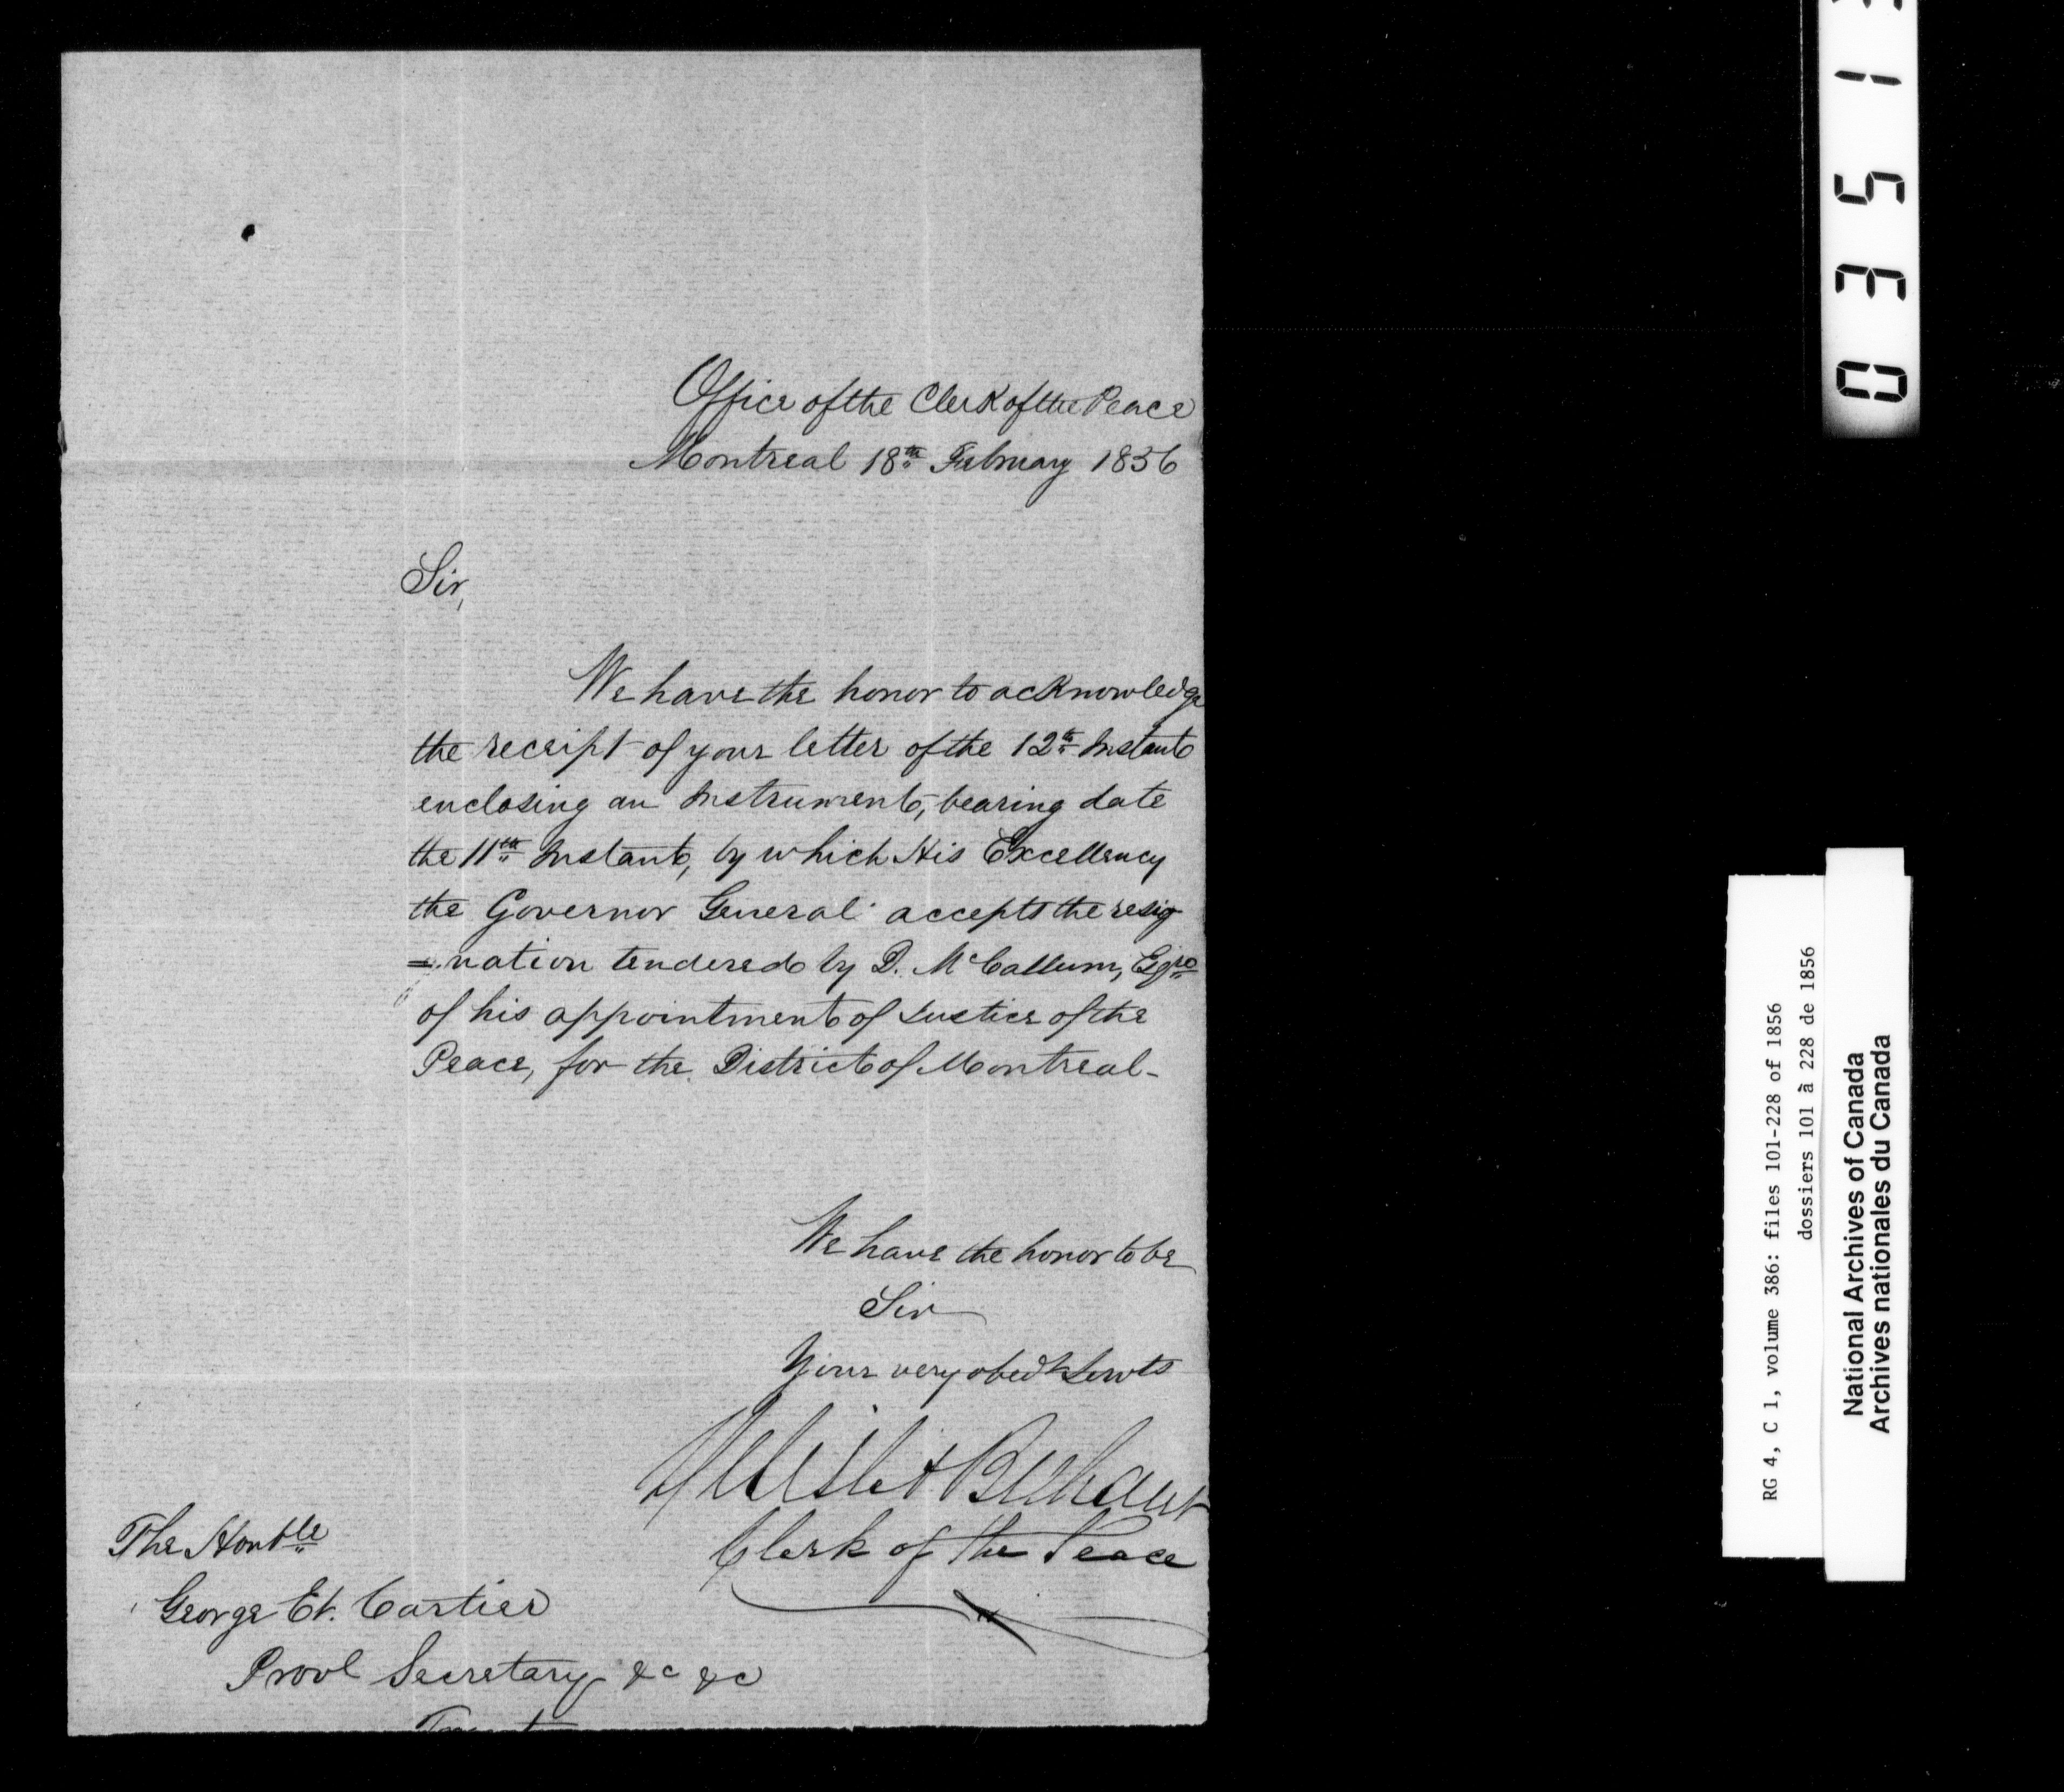 Office of the Clerk of the Peace
Montreal 18th February 1856
Sir,
We have the honor to acknowledge
the receipt of your letter of the 12th Instant
enclosing an Instrument, bearing date
the 11th Instant, by which His Excellency
the Governor General accepts the resig
=nation tendered by D. McCallum, Esqre
of his appointment of Justice of the
Peace, for the District of Montreal-
We have the honor to be
Sir
Your very obedt Servts
Delisle & Brehaut
Clerk of the Peace
The Honble
George Et. Cartier
Provl Secretary &c &c
0351
RG 4, C 1, volume 386: files 101-228 of 1856
dossiers 101 à 228 de 1856
National Archives of Canada
Archives nationales du Canada